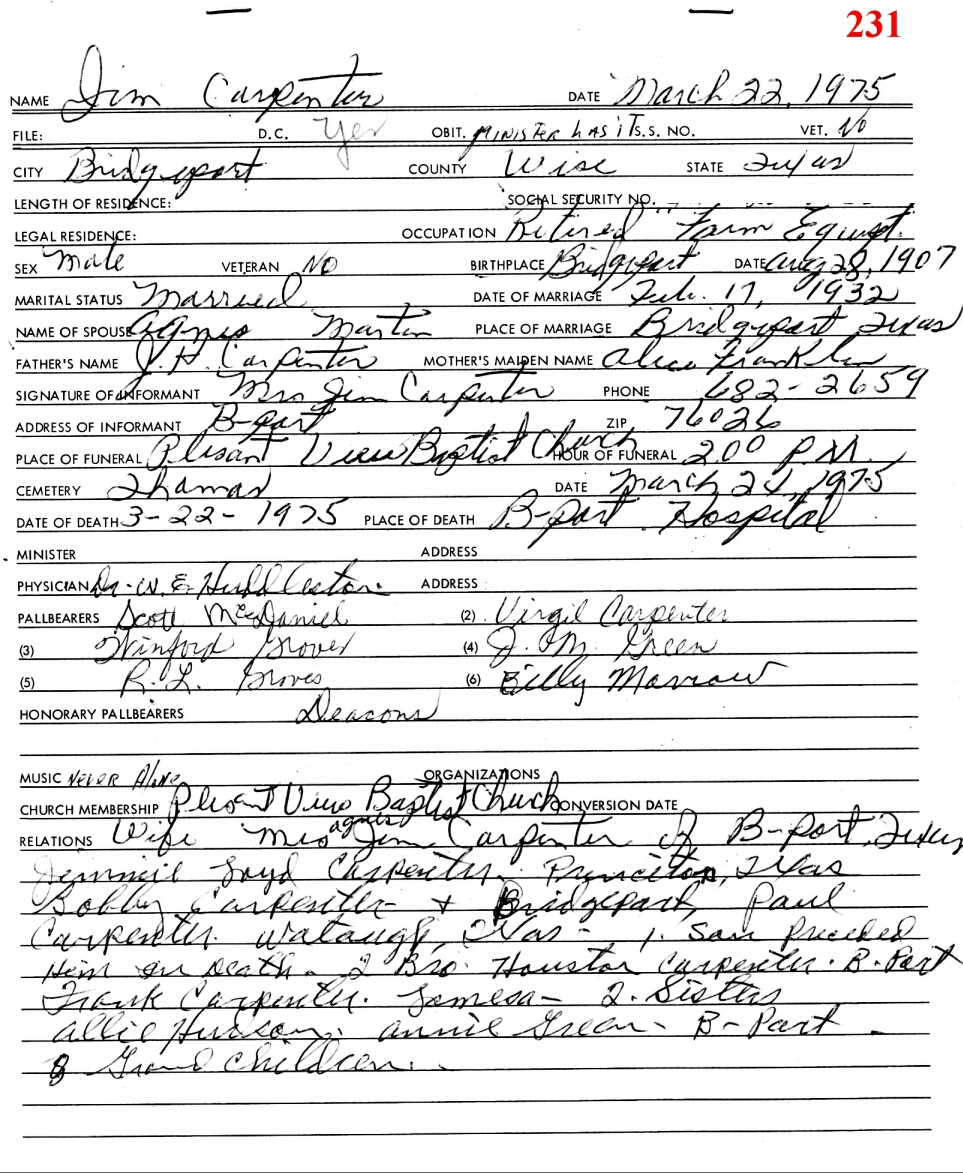 231
NAME Jim Carpenter DATE March 22, 1975
FILE: D.C. Yes OBIT. MINISTER HAS IT S.S. NO. VET. No
CITY Bridgeport COUNTY Wise STATE Texas
LENGTH OF RESIDENCE: SOCIAL SECURITY NO.
LEGAL RESIDENCE: OCCUPATION Retired Farm Equipt.
SEX Male VETERAN NO BIRTHPLACE Bridgeport DATE Aug 28, 1907
MARITAL STATUS Married DATE OF MARRIAGE Feb. 17, 1932
NAME OF SPOUSE Agnes Martin PLACE OF MARRIAGE Bridgeport Texas
FATHER'S NAME J. H. Carpenter MOTHER'S MAIDEN NAME Alice Franklin
SIGNATURE OF INFORMANT Mrs Jim Carpenter PHONE 682-2659
ADDRESS OF INFORMANT B-port ZIP 76026
PLACE OF FUNERAL Plesant View Baptist Church HOUR OF FUNERAL 2:00 P.M.
CEMETERY Thomas DATE March 1975
DATE OF DEATH 3-22-1975 PLACE OF DEATH B-port Hospital
MINISTER ADDRESS
PHYSICIAN Dr. W. E. Huddleston ADDRESS
PALLBEARERS Scott McDaniel (2) Virgil Carpenter
(3) Winford Groves (4) J. M. Green
(5) R. L. Groves (6) Billy Morrow
HONORARY PALLBEARERS Deacons
MUSIC Never Alone ORGANIZATIONS
CHURCH MEMBERSHIP Plesant View Baptist Church CONVERSION DATE
RELATIONS Wife Mrs Agnes Jim Carpenter of B-port, Texas
Jimmie Loyd Carpenter. Princeton, Texas
Bobby Carpenter + Bridgeport, Paul
Carpenter. Wataugh, Texas - 1. Son Preceded
Him in Death - 2 Bro. Houston Carpenter. B-Port
Frank Carpenter. Lamesa - 2. Sisters
Allie Hudson. Annie Green - B-Port -
8 Grand children.